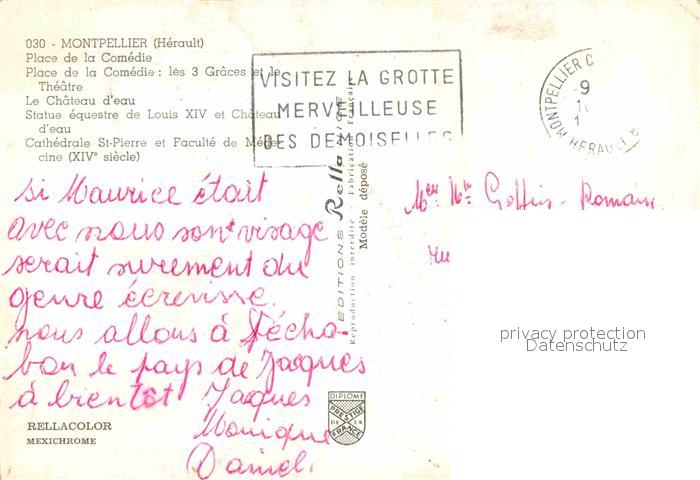 030 - MONTPELLIER (Hérault)
Place de la Comédie
Place de la Comédie : lès 3 Grâces et le
Théâtre
Le Château d'eau
Statue équestre de Louis XIV et Château
d'eau
Cathédrale St-Pierre et Faculté de Méde-
cine (XIVe siècle)
VISITEZ LA GROTTE
MERVEILLEUSE
DES DEMOISELLES
MONTPELLIER
HERAULT
si Maurice était
avec nous son visage
serait surement du
genre écrevisse.
nous allons à
le pays de Jacques
à bientôt Jacques
Monique
Daniel.
EDITIONS Rella NICE
Reproduction interdite - Fabrication Française
Modèle déposé
RELLACOLOR
MEXICHROME
DIPLOME
PRESTIGE
DE LA
FRANCE
privacy protection
Datenschutz